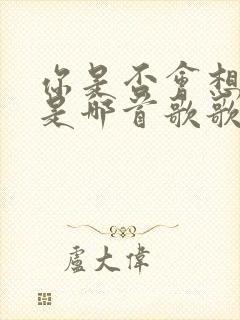 你是否會想
是那首歌歌
盧大偉